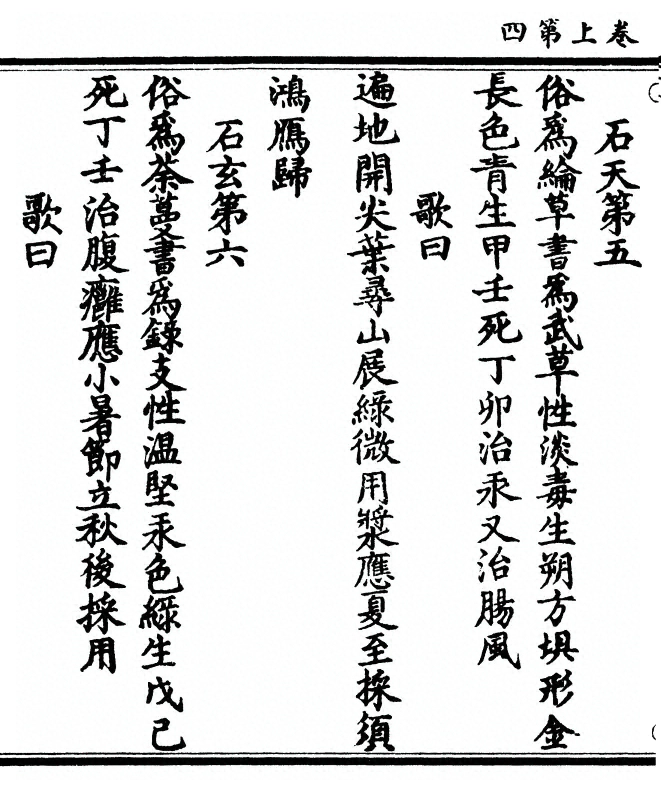 卷上第四
石天第五
俗爲綸草書爲武草性淡毒生朔方埧形金
長色青生甲壬死丁卯治汞又治腸風
歌曰
遍地開尖葉尋山展綠微用漿應夏至採須
鴻鴈歸
石玄第六
俗爲荼蔓書爲錄支性温堅汞色綠生戊己
死丁壬治腹癰應小暑節立秋後採用
歌曰